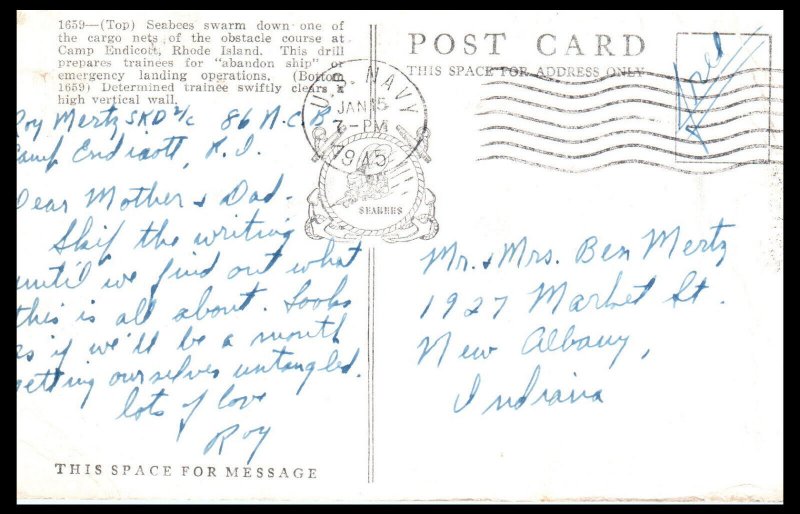 1659—(Top) Seabees swarm down one of
the cargo nets of the obstacle course at
Camp Endicott, Rhode Island. This drill
prepares trainees for "abandon ship" or
emergency landing operations. (Bottom
1659) Determined trainee swiftly clears a
high vertical wall.
Roy Mertz SKD 2/c 86 N.C.B
Camp Endicott, R.I.
Dear Mother & Dad.
Skip the writing
until we find out what
this is all about. Looks
as if we'll be a month
getting ourselves untangled.
lots of love
Roy
THIS SPACE FOR MESSAGE
POST CARD
THIS SPACE FOR ADDRESS ONLY
Free
U.S. NAVY
JAN 15
7-PM
1945
SEABEES
Mr. & Mrs. Ben Mertz
1927 Market St.
New Albany,
Indiana